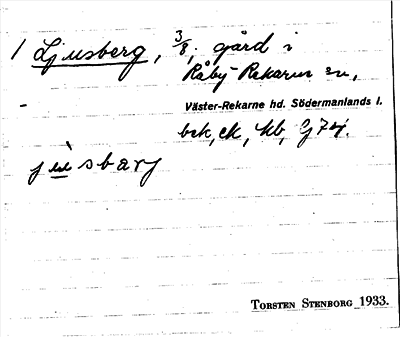 1 Ljusberg, 3/8, gård i
Råby-Rekarne sn,
Väster-Rekarne hd. Södermanlands l.
bek, ek, kb, J74.
jùsbærj
TORSTEN STENBORG 1933.